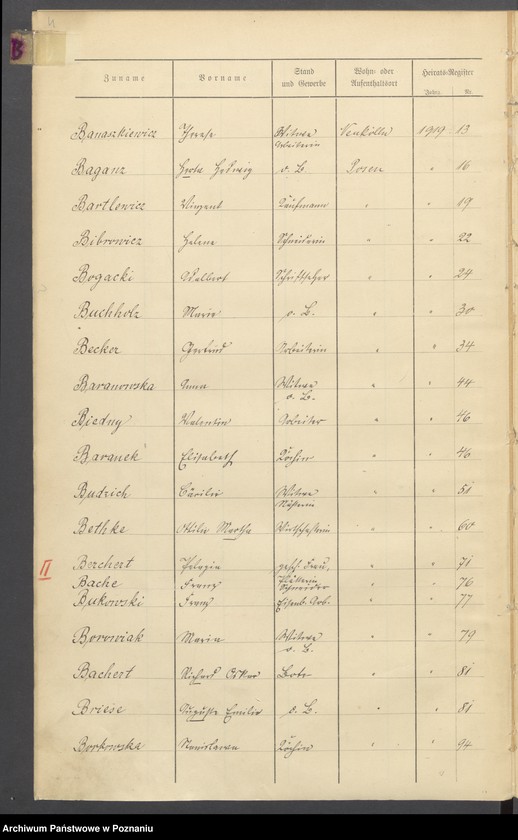 B
Zuname Vorname Stand und Gewerbe Wohn- oder Aufenthaltsort Heirats-Register
Jahr. Nr.
Banaszkiewicz Therese Witwe Neukölln 1919 13
Arbeiterin
Baganz Herta Hedwig o. B. Posen " 16
Bartlewicz Vinzent Kaufmann " " 19
Bibrowicz Helene Schneiderin " " 22
Bogacki Adalbert Schriftsetzer " " 24
Buchholz Marie o. B. " " 30
Becker Gertrud Arbeiterin " " 34
Baranowska Anna Witwe " " 44
o. B.
Biedny Valentin Arbeiter " " 46
Baranek Elisabeth Köchin " " 46
Budzich Cäcilie Witwe " " 51
Näherin
Bethke Ottilie Martha Wirtschafterin " " 60
II Berchert Pelagia gesch. Frau, " " 71
Plätterin
Bache Franz Schneider " " 76
Bukowski Franz Eisenb. Arb. " " 77
Borowiak Maria Witwe " " 79
o. B.
Bachert Richard Oskar Bote " " 81
Briese Auguste Emilie o. B. " " 81
Borkowska Stanislawa Köchin " " 94
Archiwum Państwowe w Poznaniu
szukajwarchiwach.pl